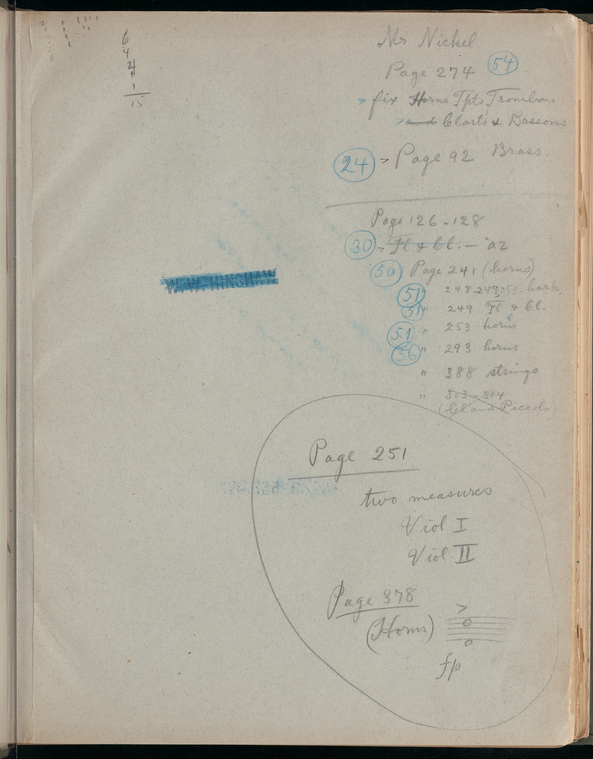 6
4
4
1
15
Mr Nickel
Page 274 54
> fix Horns Tpts Trombons
> and Clarts & Bassoons
24 > Page 92 Brass.
Page 126-128
30 - Fl & Cl. — a2
50 Page 241 (horns)
51 " 248-249-250. harp
51 " 249 Fl & Cl.
51 " 253 horns
56 " 293 horns
" 388 strings
" 503-504
(Cl and Piccolo)
Page 251
two measures
Viol I
Viol II
Page 378
(Horns) >
fp